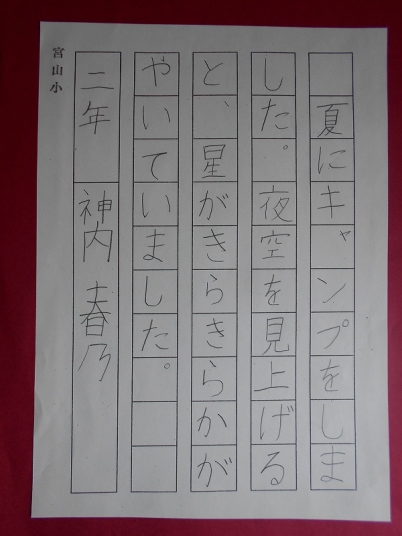 夏にキャンプをしま
した。夜空を見上げる
と、星がきらきらかが
やいていました。
二年 神内 春乃
宮山小